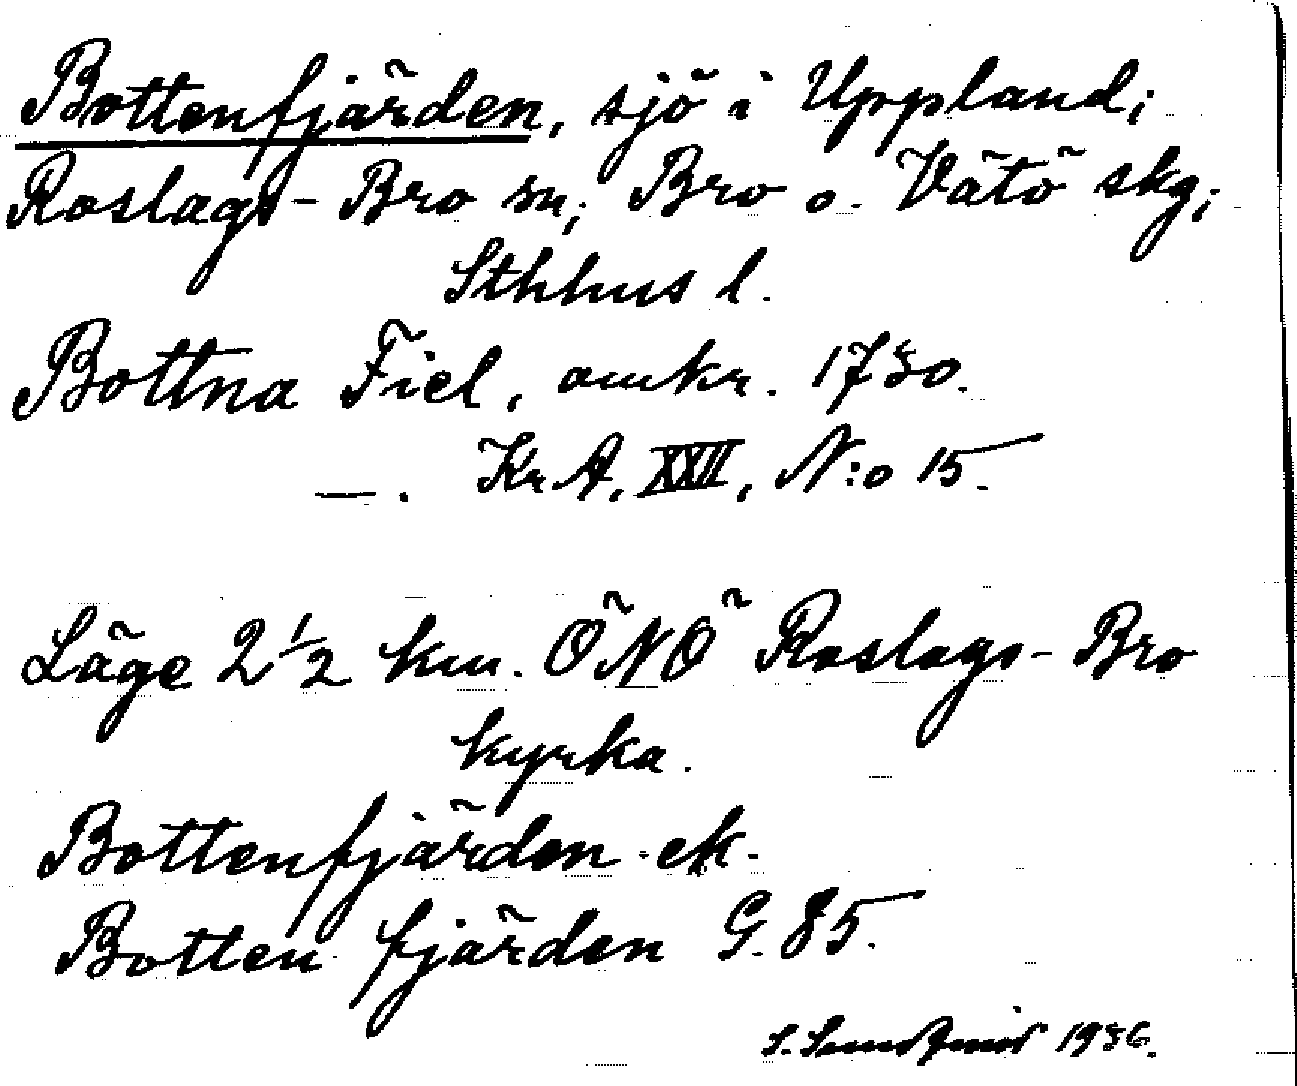 Bottenfjärden, sjö i Uppland;
Roslags-Bro sn; Bro o. Vätö skg;
Sthlms l.
Bottna Fiel, omkr. 1730.
—. KrA, XXII, N:o 15.
Läge 2 1/2 km. ÖNÖ Roslags-Bro
kyrka.
Bottenfjärden ek.
Botten fjärden G. 85.
S. 1936.